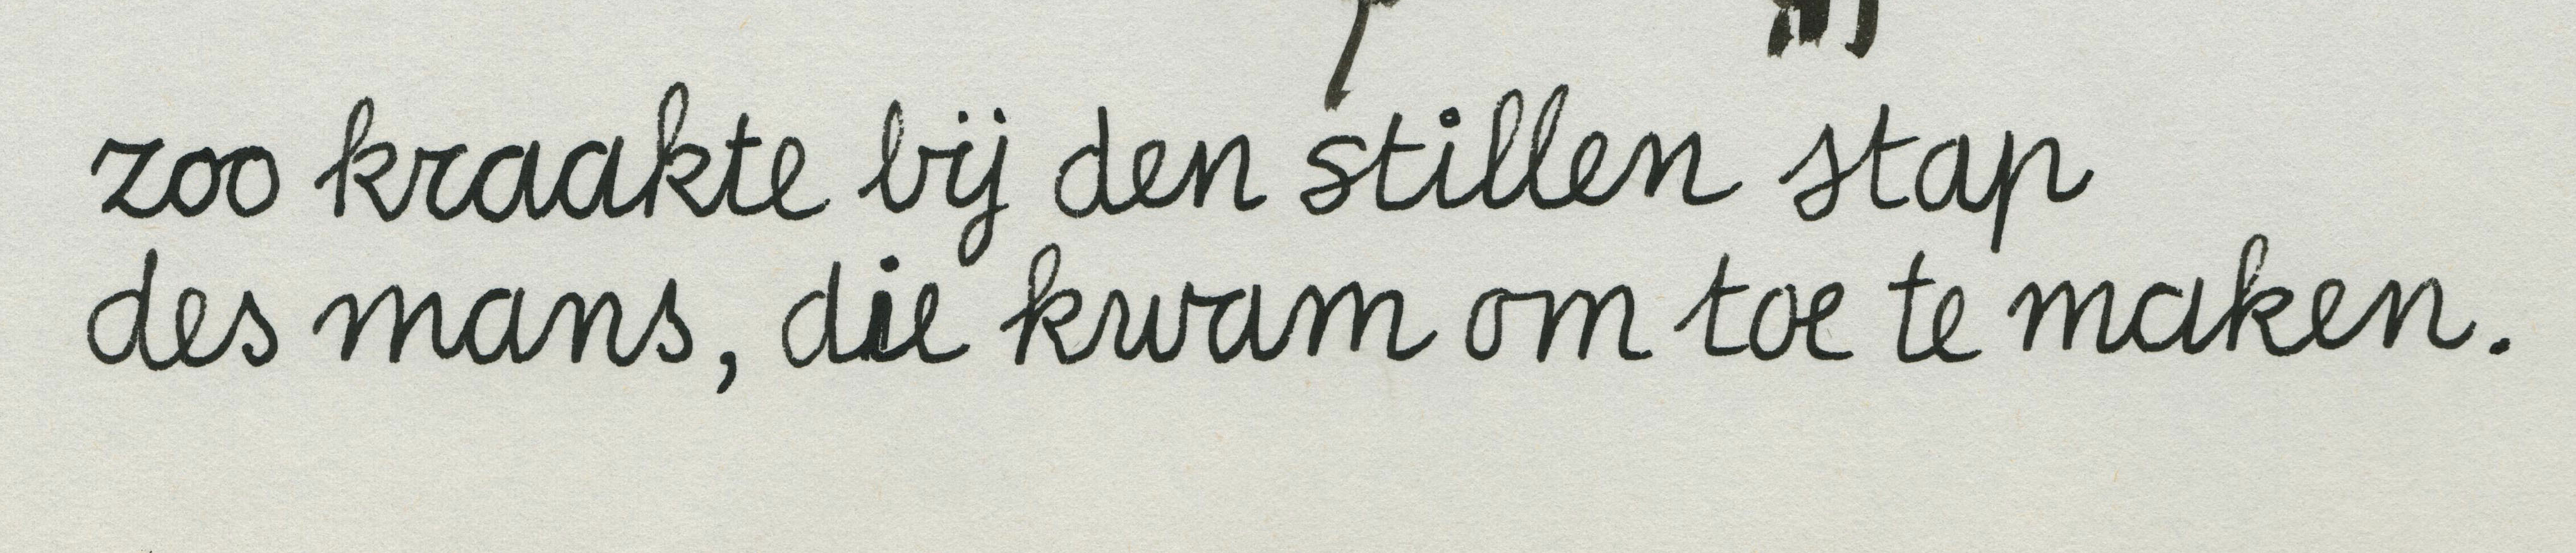 zoo kraakte bij den stillen stap
des mans, die kwam om toe te maken.